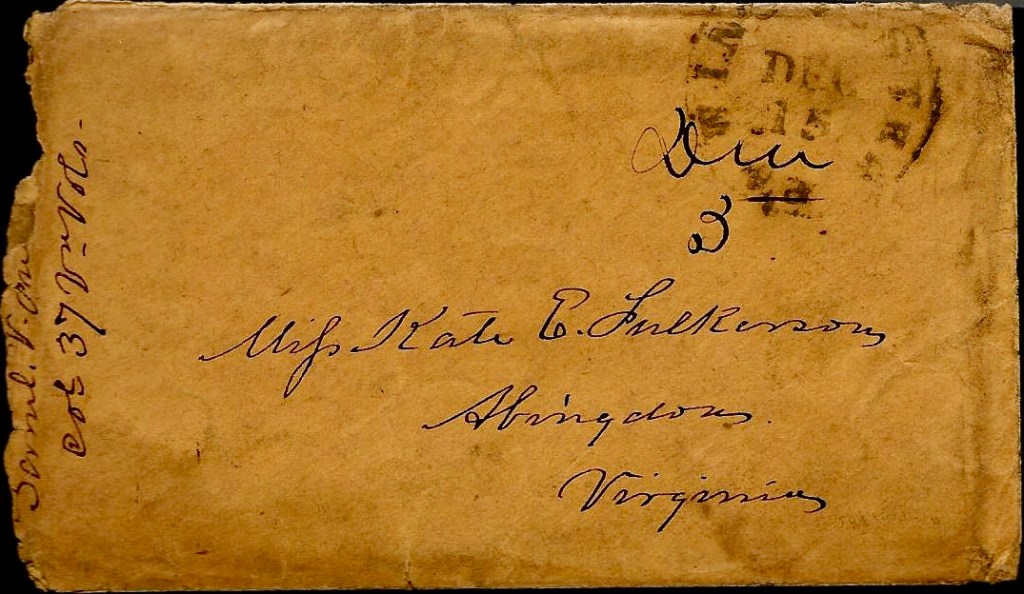 DEC
15
Due
3
Miss Kate E. Fulkerson
Abingdon
Virginia
Saml. V.
Col 37 Va Vols.